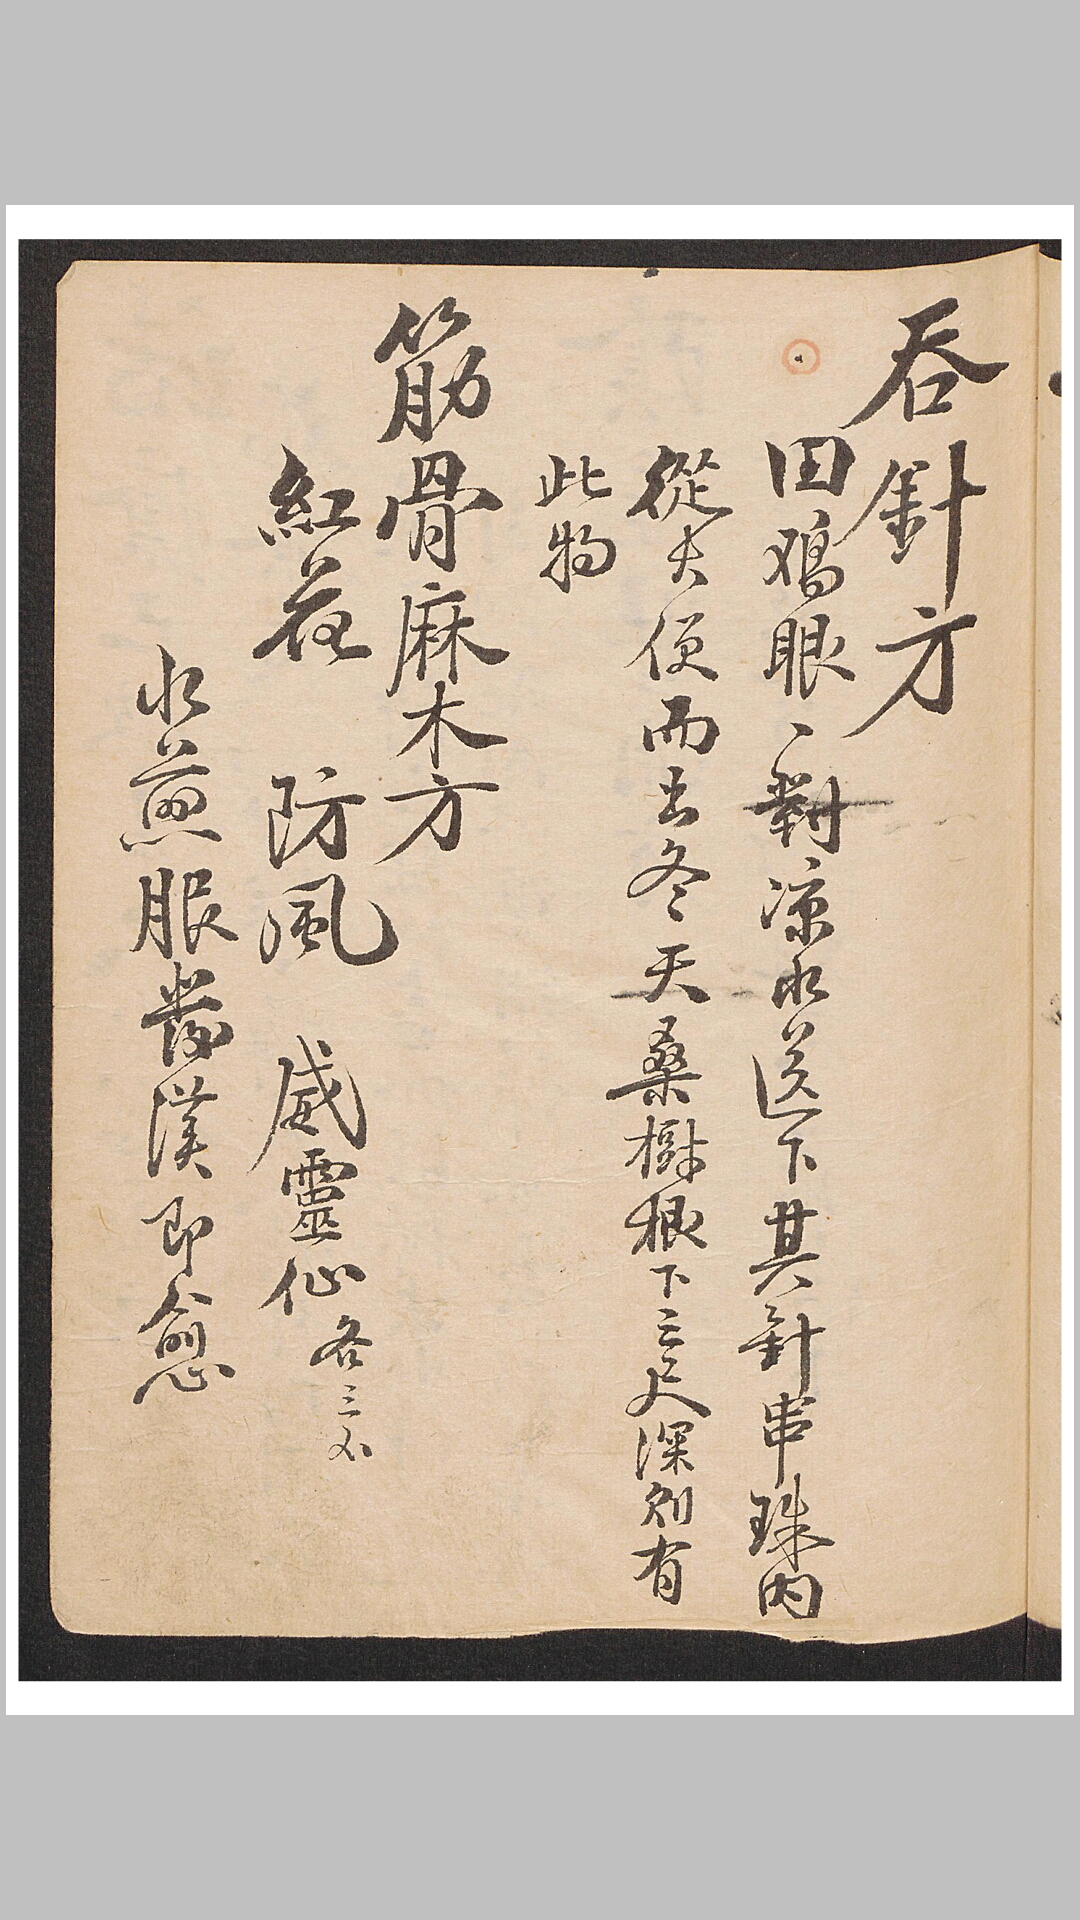 吞針方
田鸡眼一對凉水送下其針串珠内
從大便而出冬天桑樹根下三尺深則有
此物
筋骨麻木方
紅花 防風 威靈仙各三不
水煎服發漢即愈